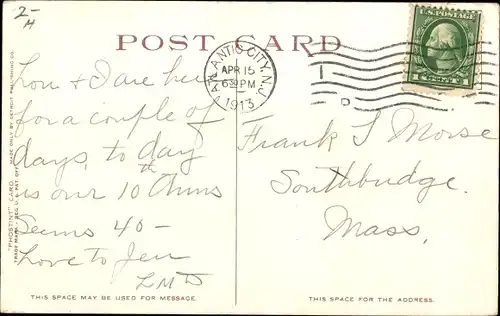 2-
H
POST CARD
ATLANTIC CITY, N.J.
APR 15
6 30 PM
1913
U.S. POSTAGE
1 CENT 1
Lou & I are here
for a couple of
days, to day
is our 10th Anns
Seems 40 -
Love to Jen
LMD
Frank L Morse
Southbridge.
Mass.
"PHOSTINT" CARD MADE ONLY BY DETROIT PUBLISHING CO.
TRADE MARK REG. U.S. PAT. OFF.
THIS SPACE MAY BE USED FOR MESSAGE.
THIS SPACE FOR THE ADDRESS.